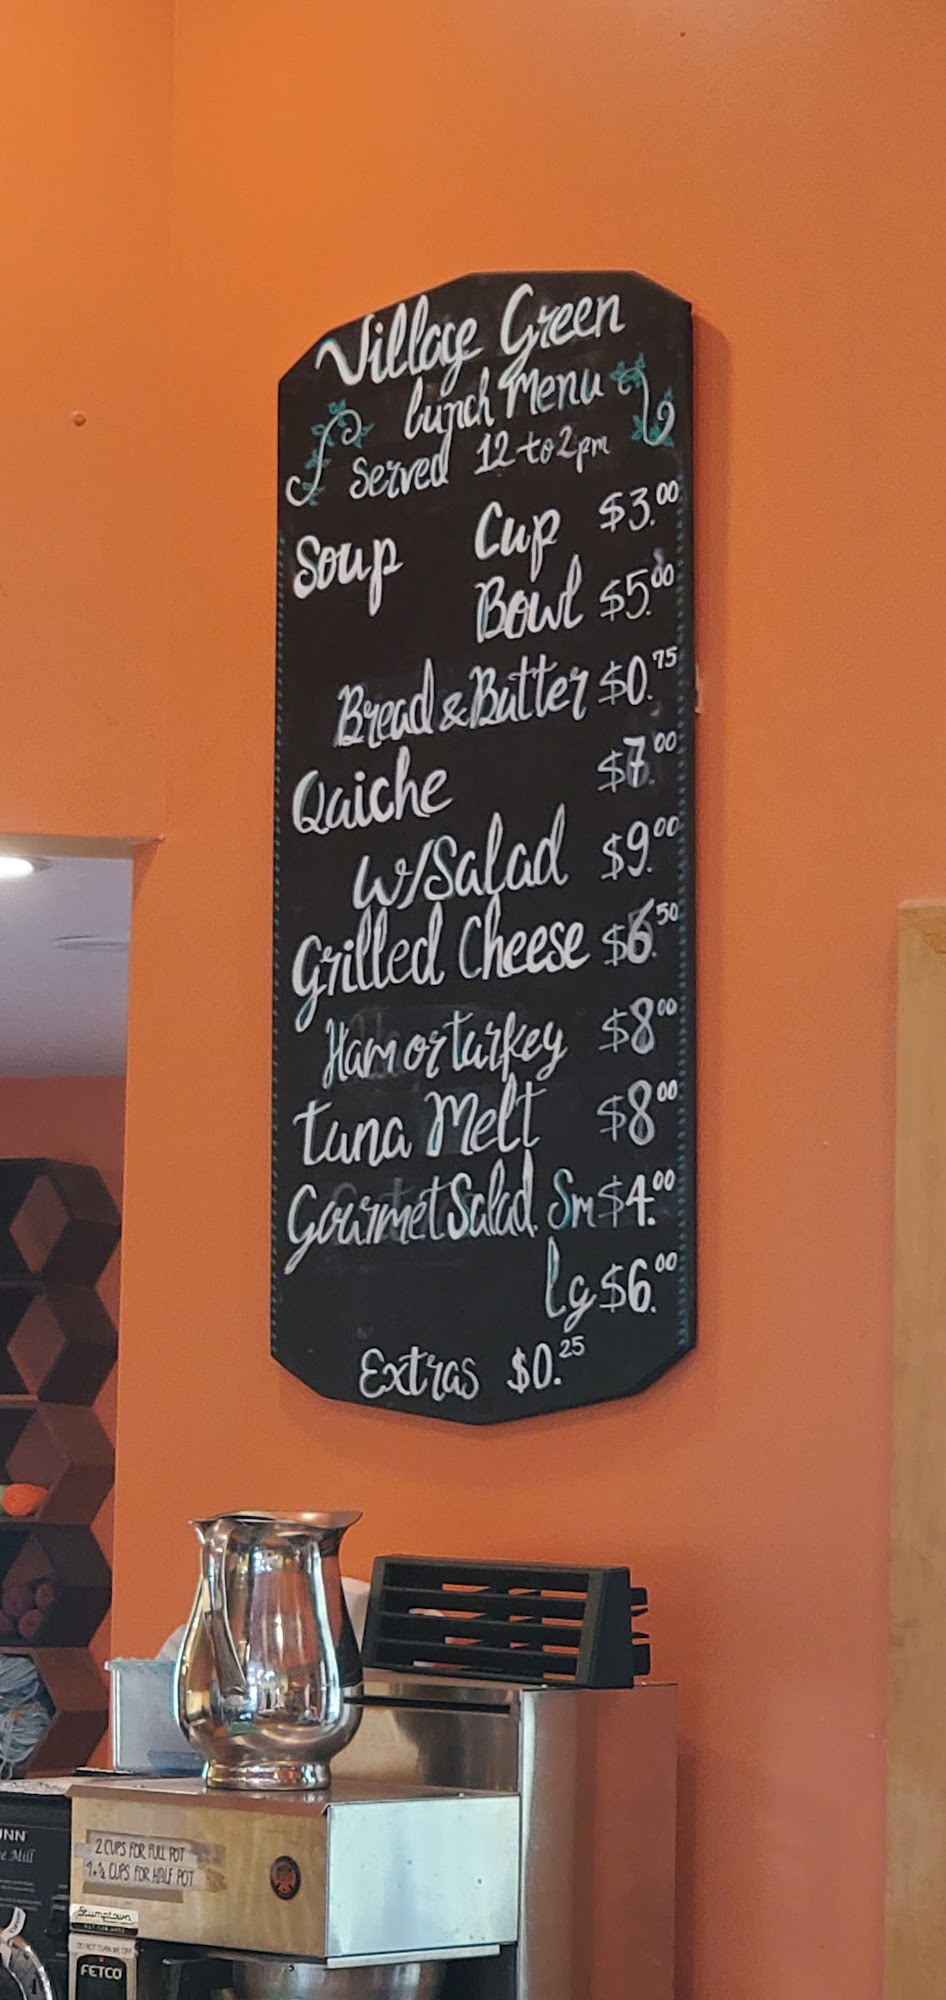 Village Green
Lunch Menu
Served 12 to 2pm
Soup Cup $3.00
Bowl $5.00
Bread & Butter $0.75
Quiche $7.00
w/Salad $9.00
Grilled Cheese $6.50
Ham or turkey $8.00
Tuna Melt $8.00
Gourmet Salad Sm $4.00
Lg $6.00
Extras $0.25
2 CUPS FOR FULL POT
1.½ CUPS FOR HALF POT
Stumptown
DO NOT TURN ME OFF
FETCO
Mill